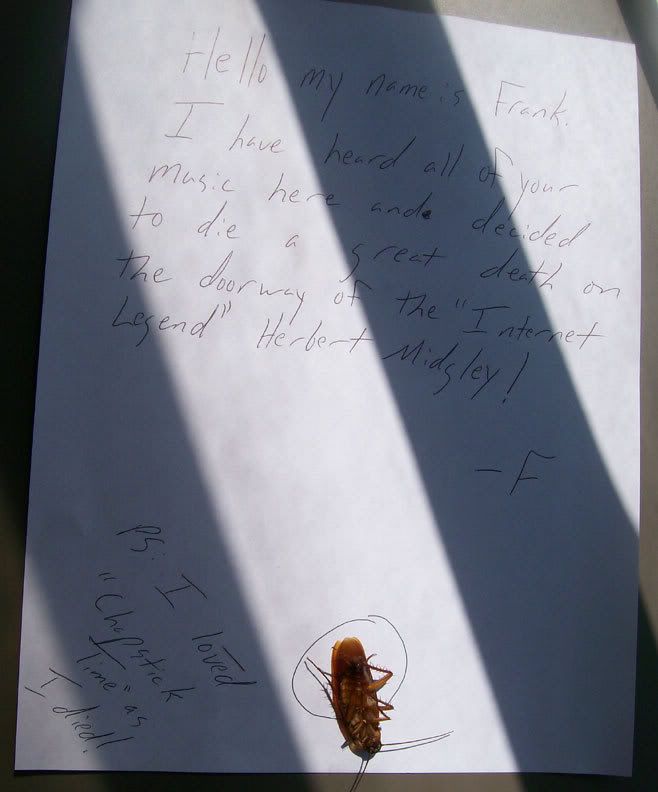 Hello my name is Frank.
I have heard all of your
music here and decided
to die a great death on
the doorway of the "Internet
Legend" Herbert Midgley!
- F
PS: I loved
"Chapstick
Time" as
I died!